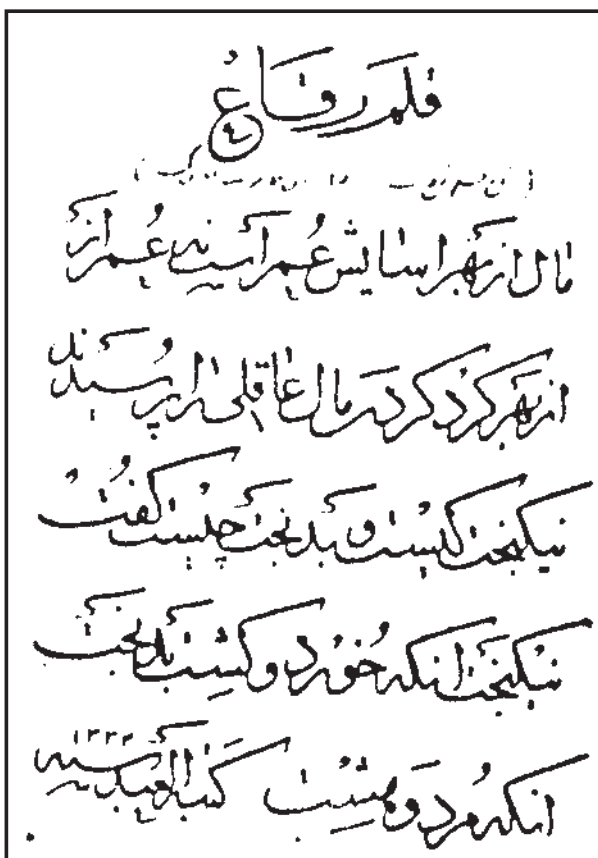 قلم رقاع
۴
مال از بهر اسایش عمر است نه عمر از
از بهر کرد کردن مال عاقلی را پرسیدند
نیکبخت کیست و بدبخت چیست کفت
نیکبخت انکه خورد و کشت بدبخت
انکه مرد و هشت کتبه العبد ۱۳۳۲